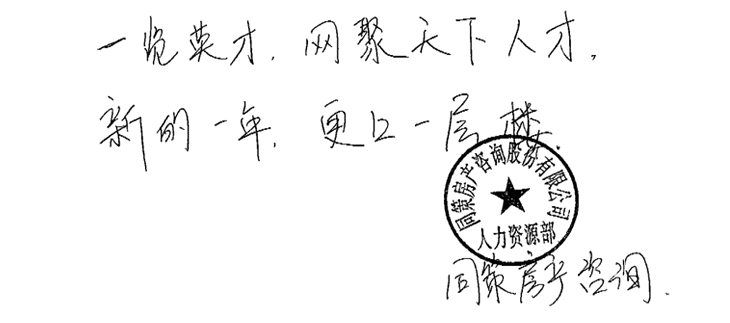 一览英才，网聚天下人才，
新的一年，更上一层楼
同策房产咨询股份有限公司
人力资源部
同策房产咨询.